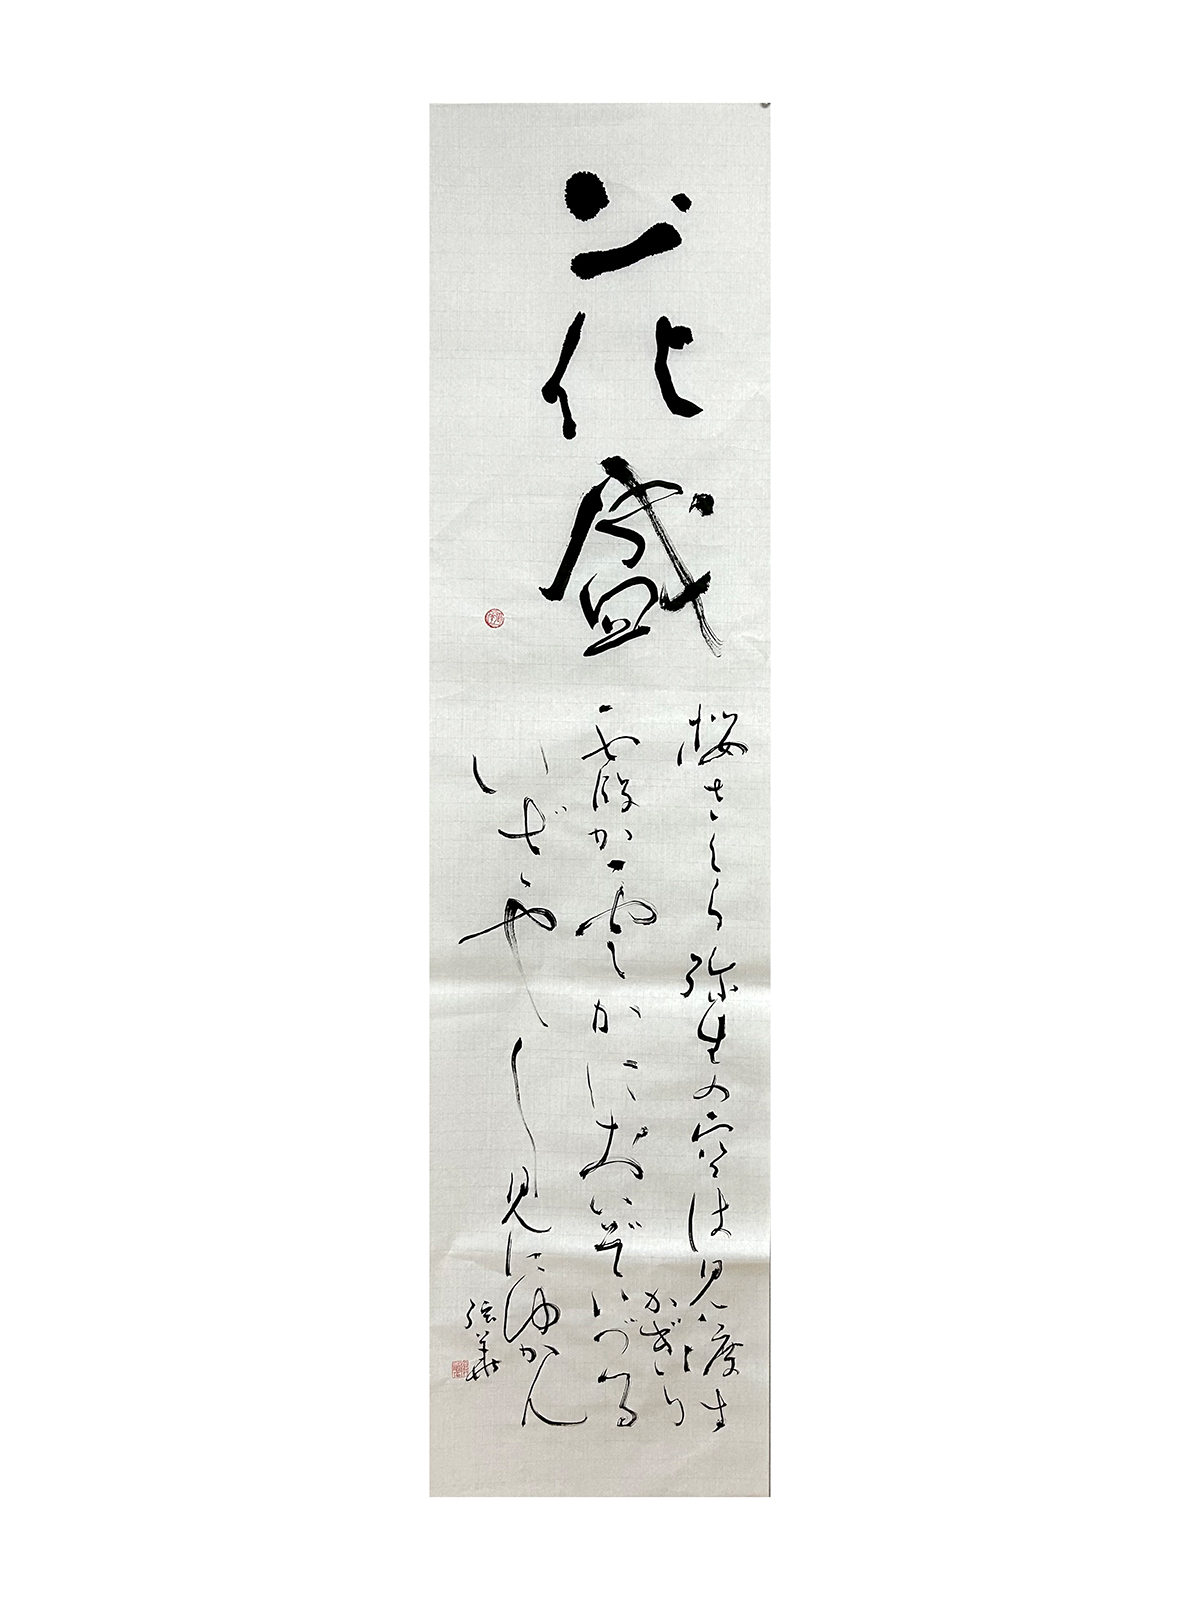 花盛
桜さくら弥生の空は見渡す
かぎり
霞か雲かにおいぞいづる
いざや〱見にゆかん
弦華